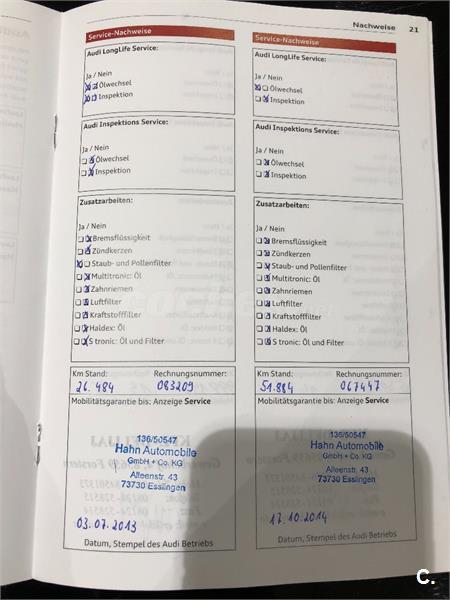 Nachweise 21
Service-Nachweise
Audi LongLife Service:
Ja / Nein
Ölwechsel
Inspektion
Audi Inspektions Service:
Ja / Nein
Ölwechsel
Inspektion
Zusatzarbeiten:
Ja / Nein
Bremsflüssigkeit
Zündkerzen
Staub- und Pollenfilter
Multitronic: Öl
Zahnriemen
Luftfilter
Kraftstofffilter
Haldex: Öl
S tronic: Öl und Filter
Km Stand: Rechnungsnummer:
26.484 083209
Mobilitätsgarantie bis: Anzeige Service
136/50547
Hahn Automobile
GmbH + Co. KG
Alleenstr. 43
73730 Esslingen
03.07.2013
Datum, Stempel des Audi Betriebs
Service-Nachweise
Audi LongLife Service:
Ja / Nein
Ölwechsel
Inspektion
Audi Inspektions Service:
Ja / Nein
Ölwechsel
Inspektion
Zusatzarbeiten:
Ja / Nein
Bremsflüssigkeit
Zündkerzen
Staub- und Pollenfilter
Multitronic: Öl
Zahnriemen
Luftfilter
Kraftstofffilter
Haldex: Öl
S tronic: Öl und Filter
Km Stand: Rechnungsnummer:
51.884 067447
Mobilitätsgarantie bis: Anzeige Service
136/50547
Hahn Automobile
GmbH + Co. KG
Alleenstr. 43
73730 Esslingen
17.10.2014
Datum, Stempel des Audi Betriebs
C.